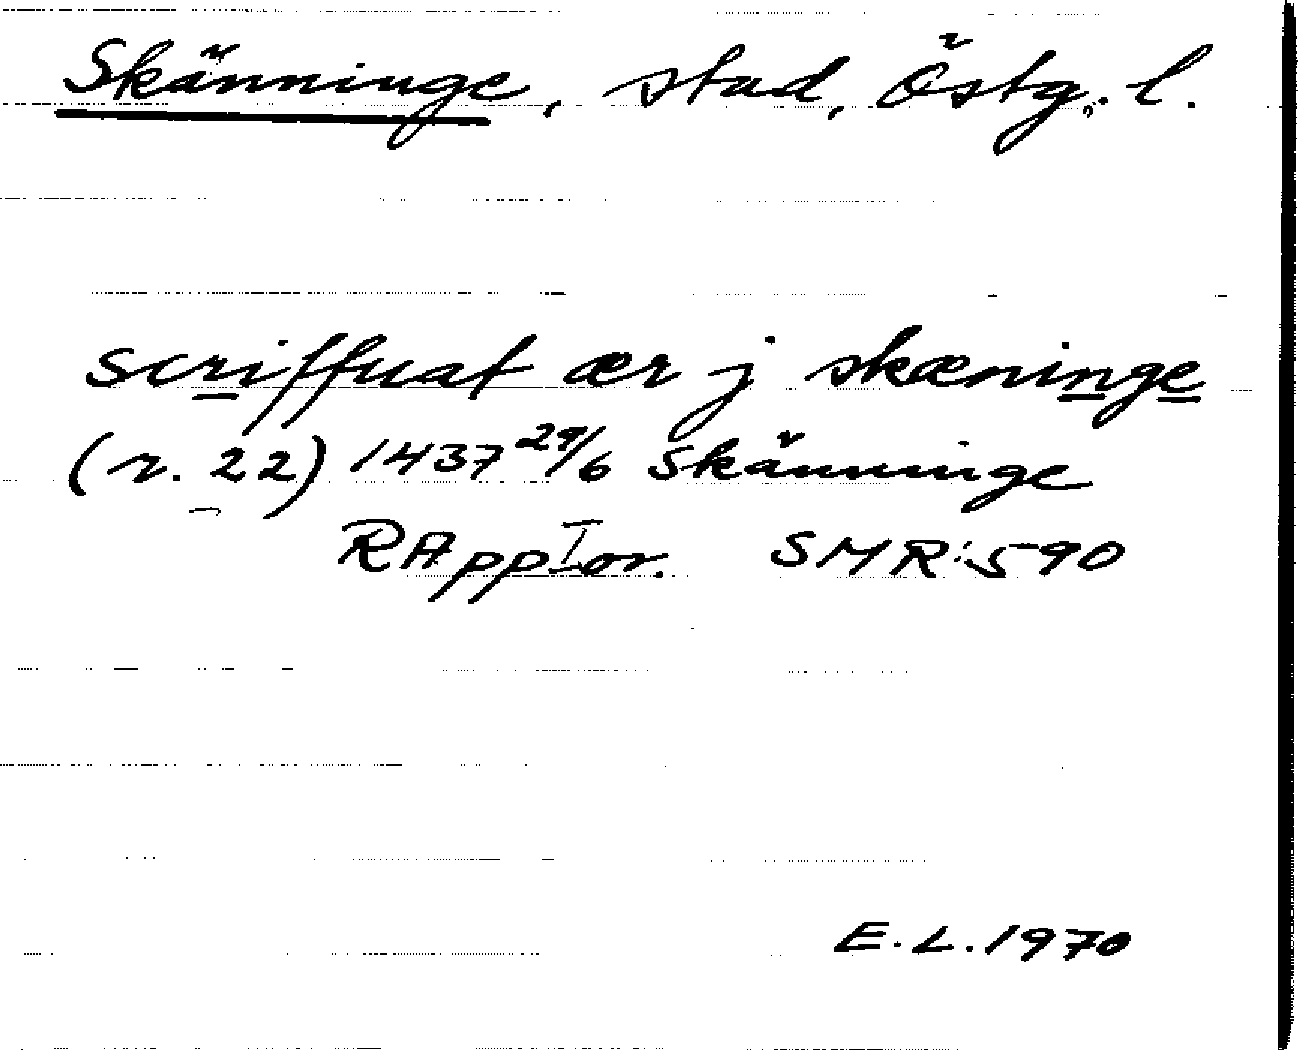 Skänninge, stad, Östg. l.
scriffuat ær j skæninge
(r. 22) 1437 29/6 Skänninge
RApp I or. SMR:590
E.L. 1970